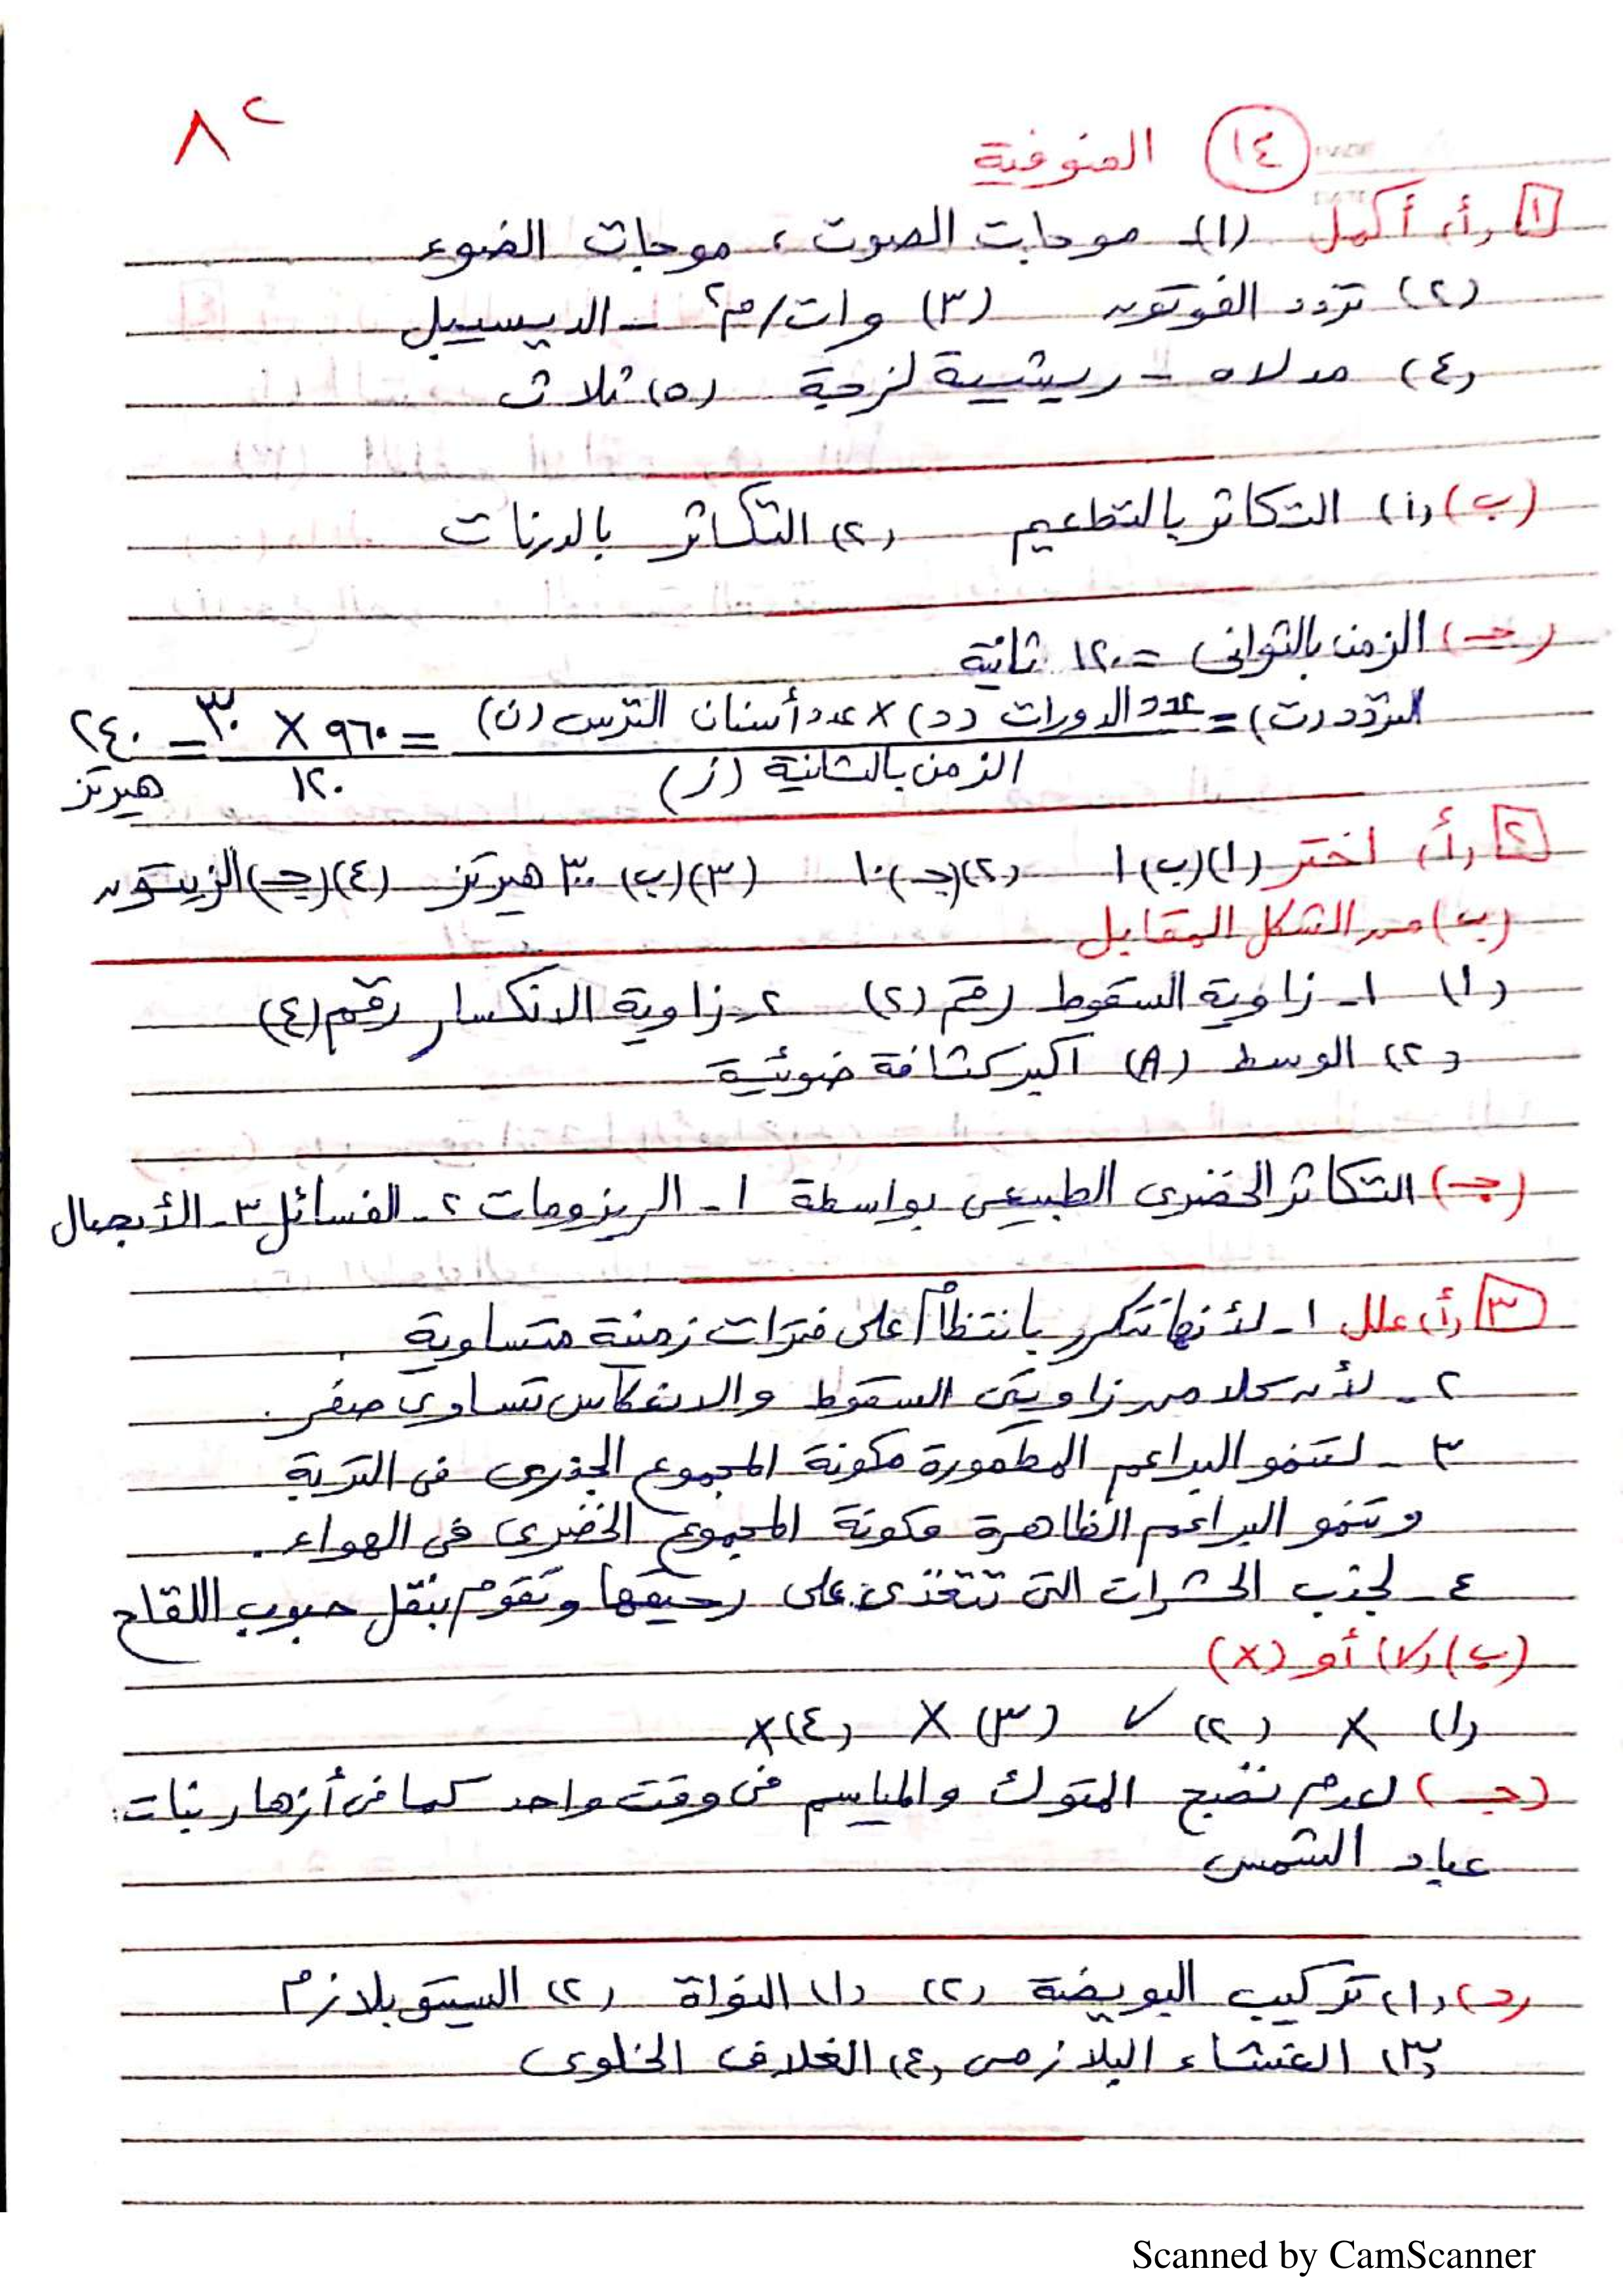 ٨٢
١٤ المنوفية
١ (أ) أكمل (١) - موجات الصوت ، موجات الضوء
(٢) تردد الفوتون (٣) وات/م٢ - الديسيبل
(٤) مدلاه - ريشية لزجة (٥) ثلاث
(ب) (١) التكاثر بالتطعيم (٢) التكاثر بالدرنات
(جـ) الزمن بالثوانى = ١٢٠ ثانية
التردد (ت) = عدد الدورات (د) × عدد أسنان الترس (ن) / الزمن بالثانية (ز) = ٩٦٠ × ٣٠ / ١٢٠ = ٢٤٠ هيرتز
٢ (أ) اختر (١) (ب) ١ (٢) (جـ) ١٠ (٣) (ب) ٣٠٠ هيرتز (٤) (جـ) الزيتون
(ب) من الشكل المقابل
(١) ١ - زاوية السقوط رقم (٢) ٢ - زاوية الانكسار رقم (٤)
(٢) الوسط (A) أكبر كثافة ضوئية
(جـ) التكاثر الخضرى الطبيعى بواسطة ١ - الريزومات ٢ - الفسائل ٣ - الأبصال
٣ (أ) علل ١ - لأنها تتكرر بانتظام على فترات زمنية متساوية .
٢ - لأن كلا من زاويتى السقوط والانعكاس تساوى صفر .
٣ - لتنمو البراعم المطمورة مكونة المجموع الجذرى فى التربة
وتنمو البراعم الظاهرة مكونة المجموع الخضرى فى الهواء .
٤ - لجذب الحشرات التى تتغذى على رحيقها وتقوم بنقل حبوب اللقاح
(ب) (√) أو (×)
(١) × (٢) √ (٣) × (٤) ×
(جـ) لعدم نضج المتوك والمياسم فى وقت واحد كما فى أزهار نبات
عباد الشمس
(د) (١) تركيب البويضة (٢) (١) النواة (٢) السيتوبلازم
(٣) الغشاء البلازمى (٤) الغلاف الخلوى
Scanned by CamScanner